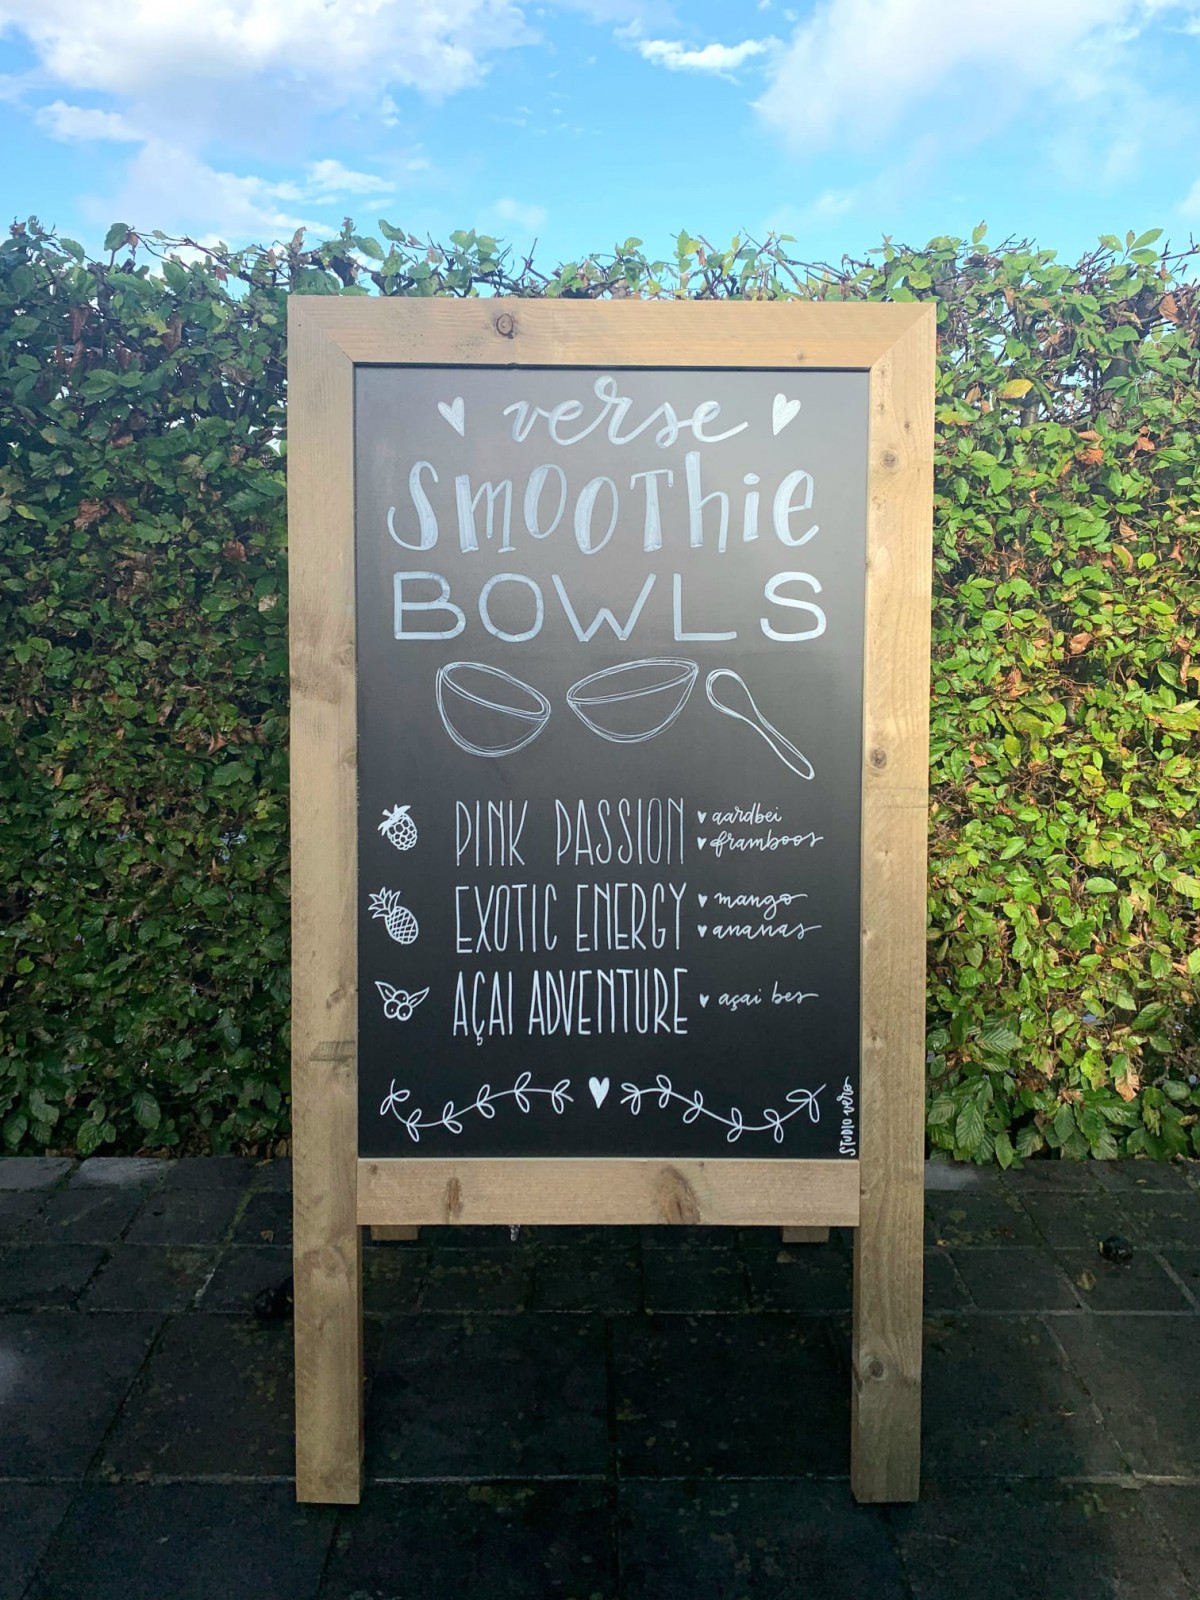 verse
Smoothie
BOWLS
PINK PASSION
aardbei
framboos
EXOTIC ENERGY
mango
ananas
AÇAI ADVENTURE
açai bes
STUDIO vero